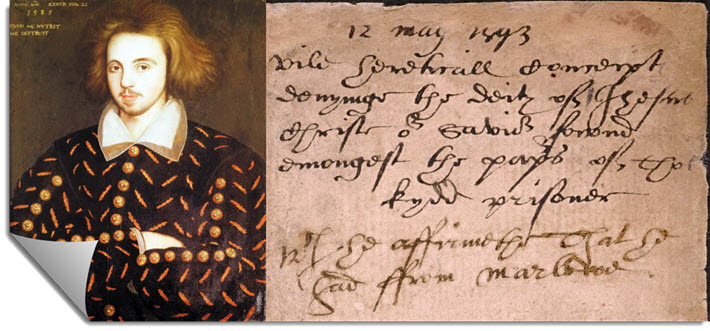 ANNO DNI ÆTATIS SVÆ 21
1585
QVOD ME NVTRIT
ME DESTRVIT
12 may 1593
vile hereticall Conceipt
denyinge the deity of Jhesus
Christe or Savior fownd
emongest the paprs of tho
kydd prisoner
wch he affirmethe That he
had ffrom marlowe